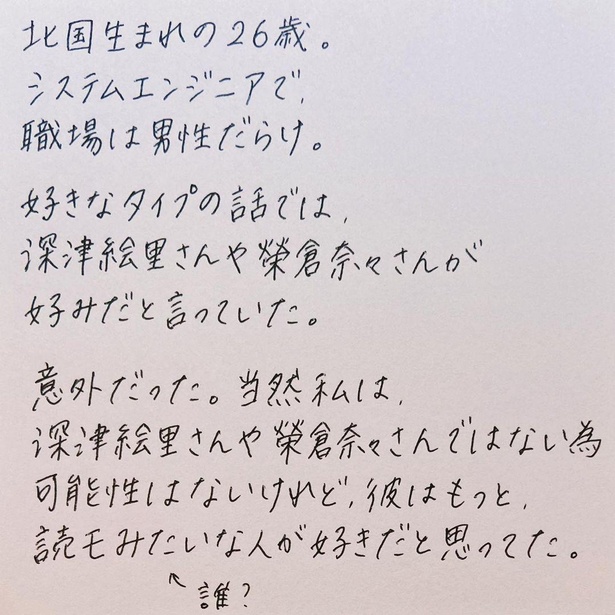 北国生まれの26歳。
システムエンジニアで、
職場は男性だらけ。
好きなタイプの話では、
深津絵里さんや榮倉奈々さんが
好みだと言っていた。
意外だった。当然私は、
深津絵里さんや榮倉奈々さんではない為
可能性はないけれど、彼はもっと、
読モみたいな人が好きだと思ってた。
↖誰?